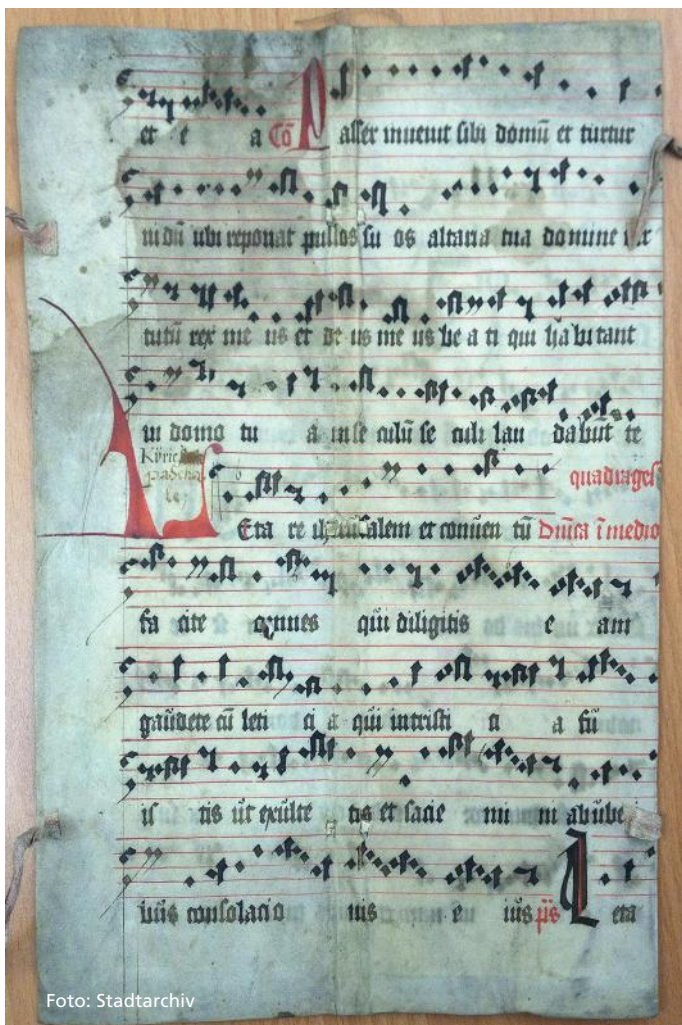 et e a Cō Passer inuenit sibi domū et turtur
nidū ubi reponat pullos su os altaria tua domine vir
tutū rex me us et de us me us be a ti qui habitant
in domo tu a in se culū se culi lau dabūt te
Kyrie
paschale
quadrages
Leta re iherusalem et conuen tū Dn̄ica ī medio
fa cite omnes qui diligitis e am
gaudete cū leti ci a qui in tristi ci a fu
is tis ut exulte tis et sacie mi ni ab ube
ribus consolacio nis e ius p̄s Leta
Foto: Stadtarchiv